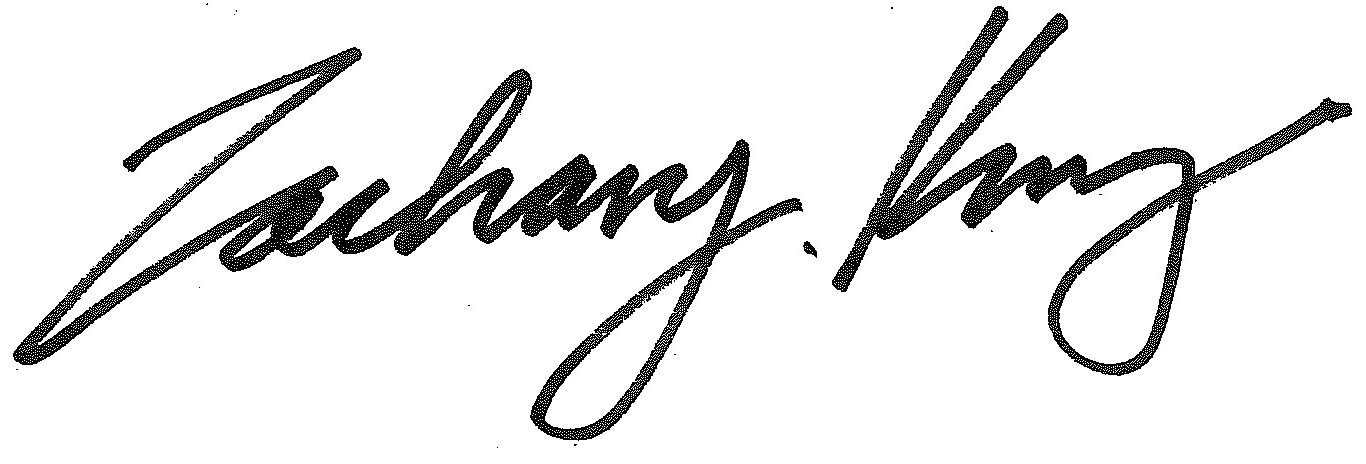 Zachary King